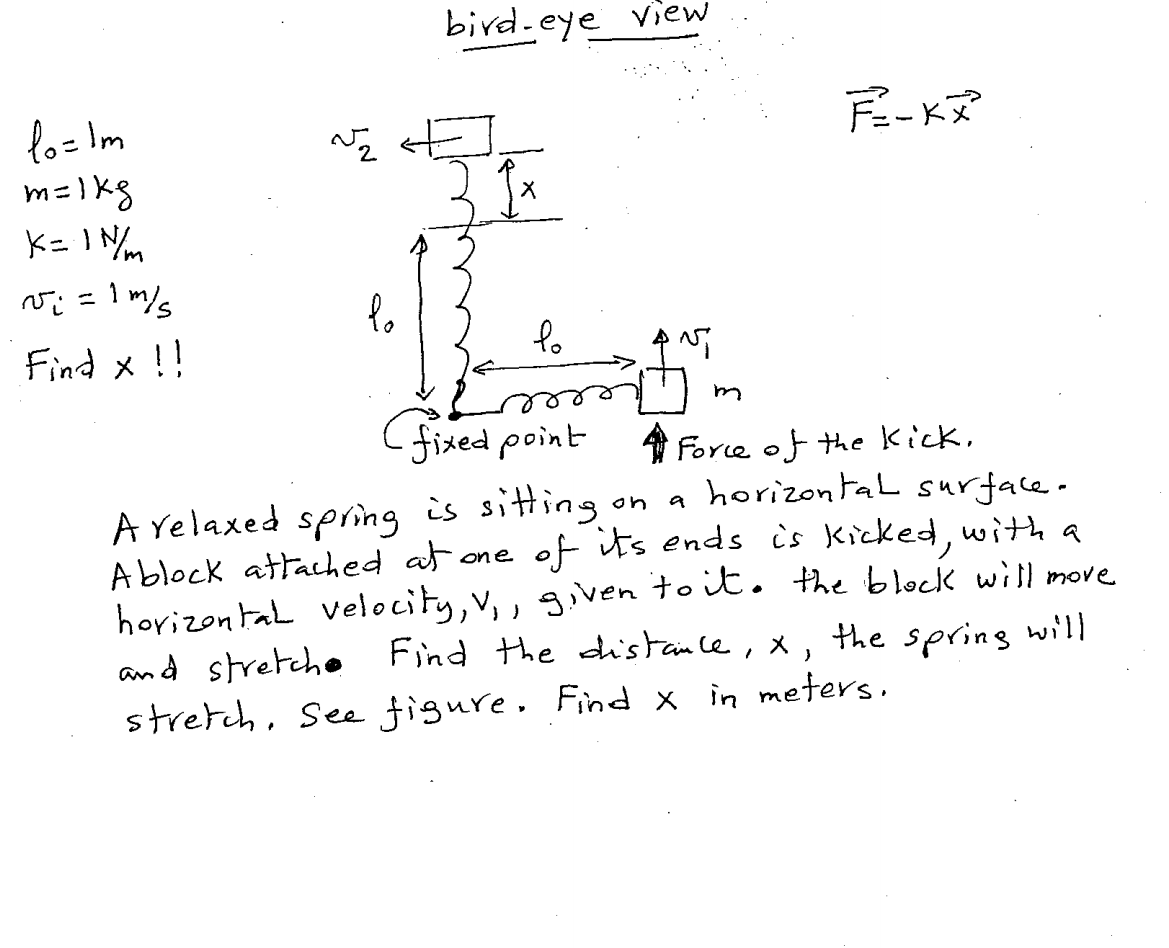 bird-eye view
F=-Kx
l₀=1m
m=1kg
K=1N/m
v₁=1m/s
Find x !!
v₂
x
l₀
l₀
v₁
m
fixed point
Force of the kick.
A relaxed spring is sitting on a horizontal surface.
A block attached at one of its ends is kicked, with a
horizontal velocity, V₁, given to it. the block will move
and stretch. Find the distance, x, the spring will
stretch. See figure. Find x in meters.